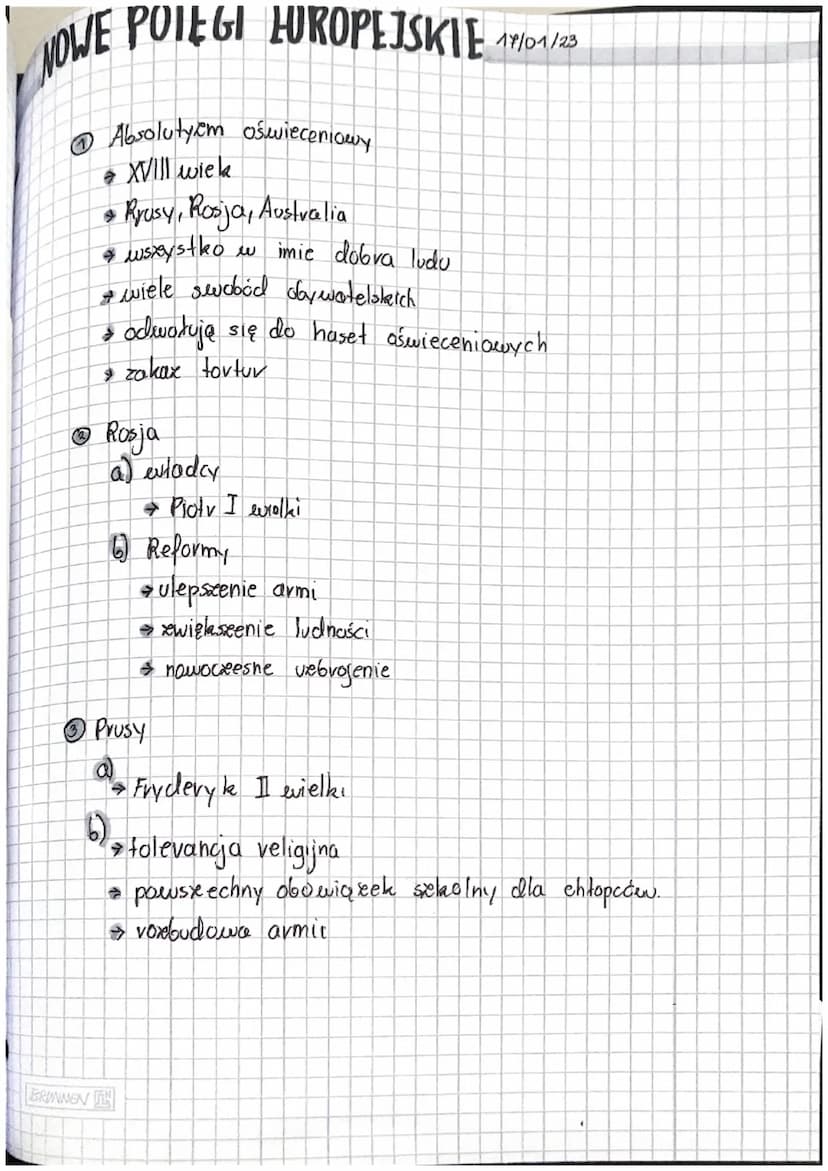 NOWE POTĘGI EUROPEJSKIE 17/01/23
① Absolutyzm oświeceniowy
→ XVIII wiek
→ Prusy, Rosja, Australia
→ wszystko w imie dobra ludu
→ wiele swobód obywatelskich
→ odwołują się do haseł oświeceniowych
→ zakaz tortur
② Rosja
a) władcy
→ Piotr I wielki
b) Reformy
→ ulepszenie armi
→ zwiększenie ludności
→ nowoczesne uzbrojenie
③ Prusy
a)
→ Fryderyk II wielki
b)
→ tolerancja religijna
→ powszechny obowiązek szkolny dla chłopców.
→ rozbudowa armii